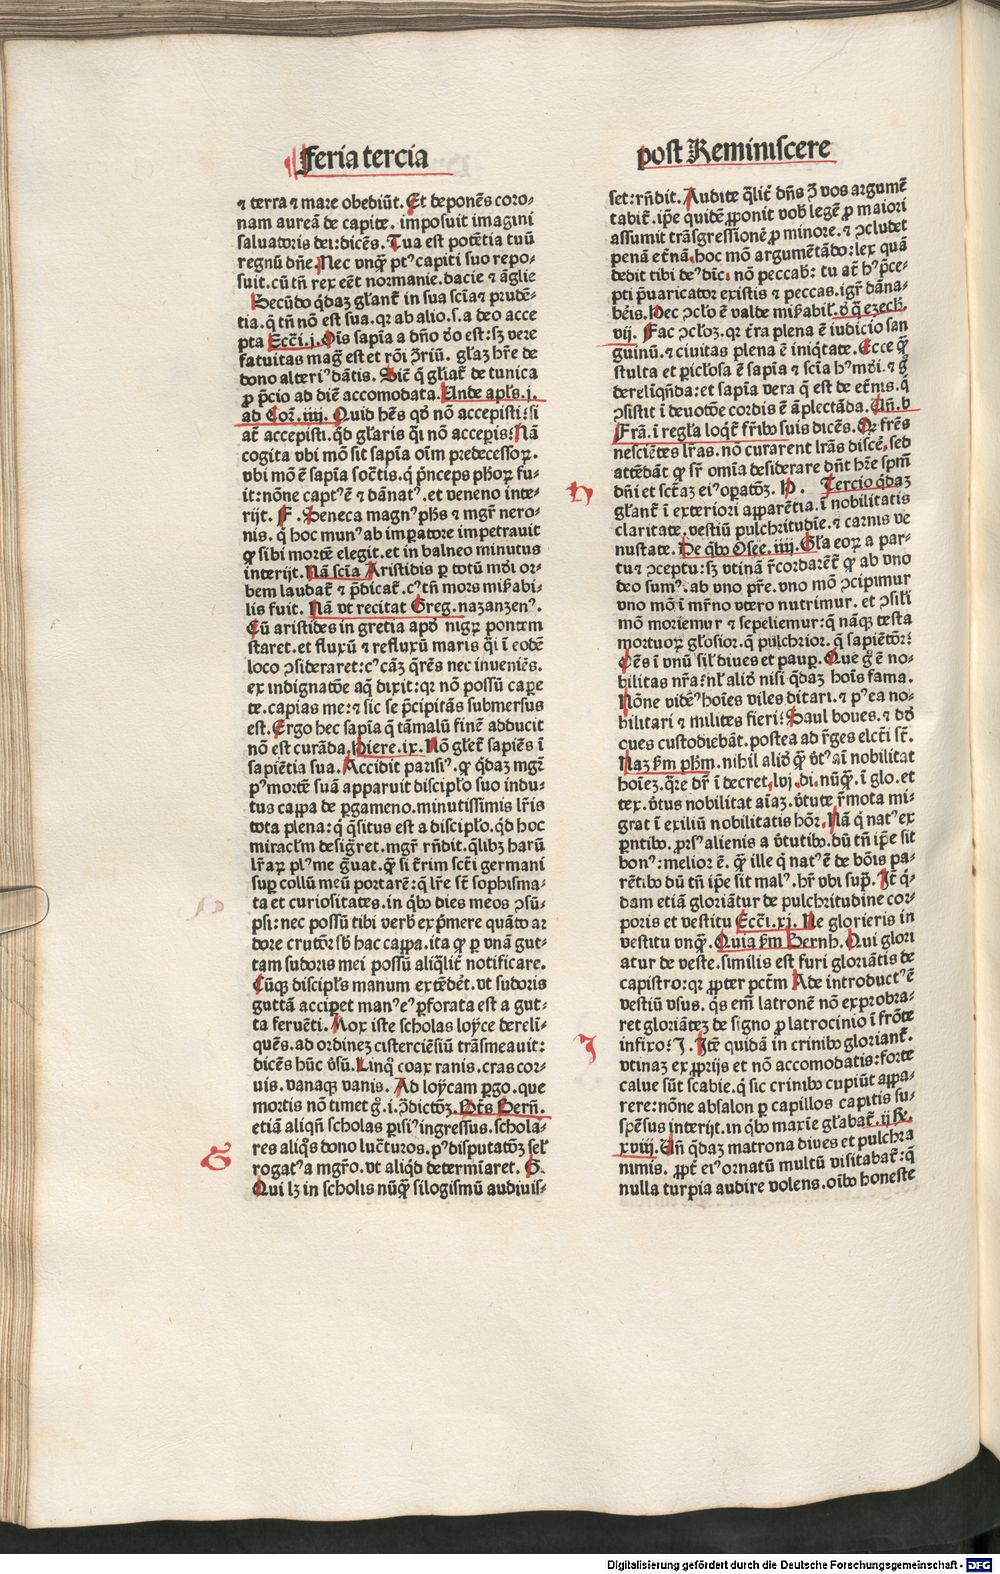 feria tercia
⁊ terra ⁊ mare obediūt. Et deponēs coro-
nam aureā de capite. imposuit imagini
saluatoris dei: dicēs. Tua est potētia tuū
regnū dn̄e. Nec vnq̄ꝫ ptꝰ capiti suo repo-
suit. cū tn̄ rex eēt normanie. dacie ⁊ āglie
Secūdo q̄daꝫ gl̄ant̄ in sua sciā ⁊ prudē-
tia. q̄ tn̄ nō est sua. qꝛ ab alio. s. a deo acce
pta Ecc̄i. j. Oīs sapīa a dn̄o do est: sꝫ vere
fatuitas maḡ est et rōi ꝯ̄riū. gl̄aꝫ hr̄e de
dono alteriꝰ dātis. Sic̄ q̄ gl̄iat̄ de tunica
ꝓ p̄cio ad diē accomodata. Vnde apl̄s. j.
ad Coꝝ. iiij. Quid hēs qd̄ nō accepisti: si
at̄ accepisti. qd̄ gl̄aris q̄i nō acceperis: Nā
cogita vbi mō sit sapīa oīm predecessoꝝ.
vbi mō ē sapīa soc̄tis. q̄ p̄nceps ph̄oꝝ fu-
it: nōne captꝰ ē ⁊ dānatꝰ. et veneno inte-
rijt. F. Seneca magnꝰ ph̄s ⁊ mgr̄ nero-
nis. q̄ hoc munꝰ ab imperatore impetrauit
ꝙ sibi mortē elegit. et in balneo minutus
interijt. Nā sciā Aristidis ꝑ totū mūdi or-
bem laudat̄ ⁊ p̄dicat̄. cꝰ tn̄ mors mirabi-
lis fuit. Nā vt recitat Greg. nazanzenꝰ.
Cū aristides in gretia apd̄ nigꝝ pontem
staret. et fluxū ⁊ refluxū maris q̄i ī eodē
loco ꝯsideraret: cꝰ cāꝫ q̄rēs nec inueniēs.
ex indignatōe aq̄ dixit: qꝛ nō possū cape
te. capias me: ⁊ sic se p̄cipitās submersus
est. Ergo hec sapīa q̄ tā malū finē adducit
nō est curāda. Hiere. ix. Nō gl̄et̄ sapiēs ī
sapiētia sua. Accidit parisiꝰ. ꝙ q̄daꝫ mgr̄
pꝰ mortē suā apparuit discipl̄o suo indu-
tus cappa de pergameno. minutissimis lr̄is
tota plena: q̄ q̄situs est a discipl̄o. qd̄ hoc
miracl̄m desigr̄et. mgr̄ rn̄dit. q̄libꝫ harū
lr̄aꝝ plꝰ me ḡuat. ꝙ̄ si t̄rim scti germani
suꝑ collū meū portarē: q̄ lr̄e st̄ sophisma-
ta et curiositates. in q̄bꝯ dies meos ꝯsū-
psi: nec possū tibi verb̄ exp̄mere quāto ar
dore crutōr sb̄ hac cappa. ita ꝙ ꝑ vnā gut-
tam sudoris mei possū aliq̄lit̄ notificare.
Cūqꝫ discipl̄s manum extēdēt. vt sudoris
guttā acciꝑet manꝰ eꝰ ꝑforata est a gut-
ta feruēti. Mox iste scholas loyce dereli-
quēs. ad ordinez cisterciēsiū trāsmeauit:
dicēs hūc v̄sū. Linq̄ coax ranis. cras cor-
uis. vanaqꝫ vanis. Ad loycam pergo. que
mortis nō timet g̊. i. ꝯ̄dictōꝫ. Pt̄s Bern̄.
etiā aliqn̄ scholas ꝑisiꝰ ingressus. schola-
res aliq̄s dono luc̄turos. pꝰ disputatōꝫ sel̄
rogatꝰ a mgr̄o. vt aliqd̄ determīaret. G.
Qui lꝫ in scholis nūq̄ꝫ silogismū audiuis-
post Reminiscere
set: rn̄dit. Audite q̄lit̄ dn̄s ꝯ̄ vos argumē
tabit̄. ip̄e quidē ꝓponit vob̄ legē ꝓ maiori
assumit trāsgressionē ꝓ minore. ⁊ ꝯcludet
penā et̄nā. hoc mō argumētādo: lex quā
dedit tibi deꝰ dīc. nō peccab̄: tu at̄ hꝰ p̄ce-
pti p̄uaricator existis ⁊ peccas. igr̄ dāna-
bēis. Nec ꝯcl̄o ē valde mirabil̄. d̄ q̄ ezech.
vij. Fac ꝯcl̄oꝫ. qꝛ t̄ra plena ē iudicio san
guinū. ⁊ ciuitas plena ē iniq̄tate. Ecce q̄ꝫ
stulta et picl̄osa ē sapīa ⁊ sciā hꝰ mūdi. ⁊ g̊
dereliq̄nda: et sapīa vera q̄ est de et̄nis. q̄
ꝯsistit ī deuotōe cordis ē āplectāda. Vn̄. b
Frā. ī regl̄a loqt̄ fr̄ibꝯ suis dicēs. Qꝛ fr̄es
nesciētes lr̄as. nō curarent lr̄as discē. sed
attēdāt ꝙ sr̄ omīa desiderare dn̄t hr̄e spm̄
dn̄i et sctaꝫ eiꝰ oꝑatōꝫ. H. Tercio q̄daꝫ
gl̄ant̄ ī exteriori apparētia. ī nobilitatis
claritate. vestiū pulchritudīe. ⁊ carnis ve
nustate. De q̄bꝯ Osee. iiij. Gl̄a eoꝝ a par-
tu ⁊ ꝯceptu: sꝫ vtinā r̄cordarēt̄ ꝙ ab vno
deo sumꝰ. ab vno pr̄e. vno mō ꝯcipimur
vno mō ī mr̄no vtero nutrimur. et ꝯsili
mō moriemur ⁊ sepeliemur: q̄ nāqꝫ testa
mortuoꝝ gl̄osior. q̄ pulchrior. q̄ sapiētōr:
Oēs ī vnū sil̄ diues et pauꝑ. Que g̊ ē no-
bilitas nr̄a: nl̄ aliō nisi q̄daꝫ hoīs fama.
Nōne vidēꝰ hoīes viles ditari. ⁊ pꝰ ea no-
bilitari ⁊ milites fieri: Saul boues. ⁊ dd̄
oues custodiebāt. postea ad r̄ges elc̄ti st̄.
Naꝫ ẜm ph̄m. nihil aliō q̄ꝫ v̄tꝰ aī nobilitat
hoīez. q̄re dr̄ ī decret. lvj. di. nūq̄ꝫ. ī glo. et
tex. v̄tus nobilitat aīaꝫ. v̄tute r̄mota mi-
grat ī exiliū nobilitatis hōr. Nā q̄ natꝰ ex
ꝑntibꝯ. prsꝰ alienis a v̄tutibꝯ. dū tn̄ ip̄e sit
bonꝰ: melior ē. ꝙ̄ ille q̄ natꝰ ē de bōis pa-
rētibꝯ dū tn̄ ip̄e sit malꝰ. hr̄ vbi sup̄. Itē q̄-
dam etiā gloriātur de pulchritudine cor-
poris et vestitu Ecc̄i. xj. Ne glorieris in
vestitu vnq̄ꝫ. Quia ẜm Bernh. Qui glori
atur de veste. similis est furi gloriātis de
capistro: qꝛ ꝓpter pctm̄ Ade introductꝰ ē
vestiū vsus. q̄s em̄ latronē nō exprobra-
ret gloriātez de signo ꝓ latrocinio ī frōte
infixo: J. Itē quidā in crinibꝯ gloriant̄.
vtinaz ex ꝓprijs et nō accomodatis: forte
calue sūt scabie. q̄ sic crinibꝯ cupiūt appa-
rere: nōne absalon ꝑ capillos capitis su-
spēsus interijt. in q̄bꝯ maxīe gl̄abat̄. ij R̄.
xviij. Vn̄ q̄daꝫ matrona diues et pulchra
nimis. ꝓpt̄ eiꝰ ornatū multū visitabat̄: q̄
nulla turpia audire volens. oībꝯ honeste
H
J
G
Digitalisierung gefördert durch die Deutsche Forschungsgemeinschaft - DFG